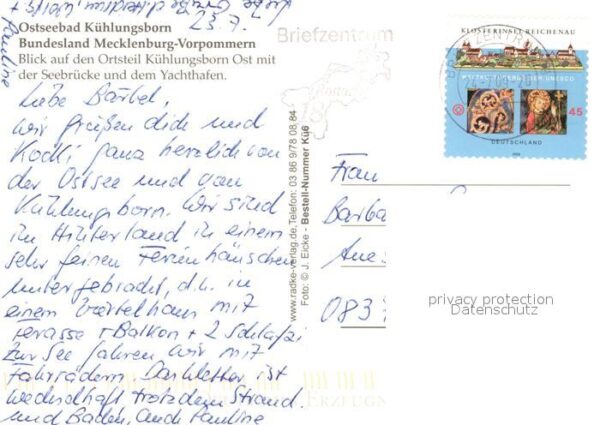 23.7.
Pauline
Ostseebad Kühlungsborn
Bundesland Mecklenburg-Vorpommern
Blick auf den Ortsteil Kühlungsborn Ost mit
der Seebrücke und dem Yachthafen.
Liebe Bärbel,
wir grüßen dich und
ganz herzlich von
der Ostsee und von
Kühlungsborn. Wir sind
im Hinterland in einem
sehr feinen Ferienhäuschen
untergebracht, d.h. in
einem haus mit
Terasse + Balkon + 2 Schlafzi
Zur See fahren wir mit
Fahrrädern. Das Wetter ist
wechselhaft trotzdem Strand
und Baden, auch Pauline
www.radke-verlag.de, Telefon: 03 86 9/78 08 84
Foto: © J. Eicke - Bestell-Nummer Kü6
Briefzentrum
KLOSTERINSEL REICHENAU
WELTKULTURERBE DER UNESCO
45
DEUTSCHLAND
Frau
Barba
083
privacy protection
Datenschutz